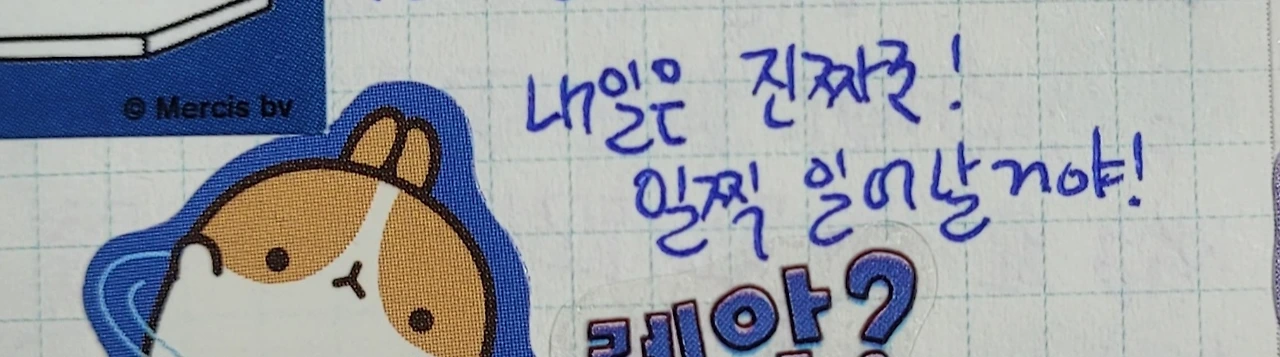 © Mercis bv
내일은 진짜루!
일찍 일어날거야!
뭐야?